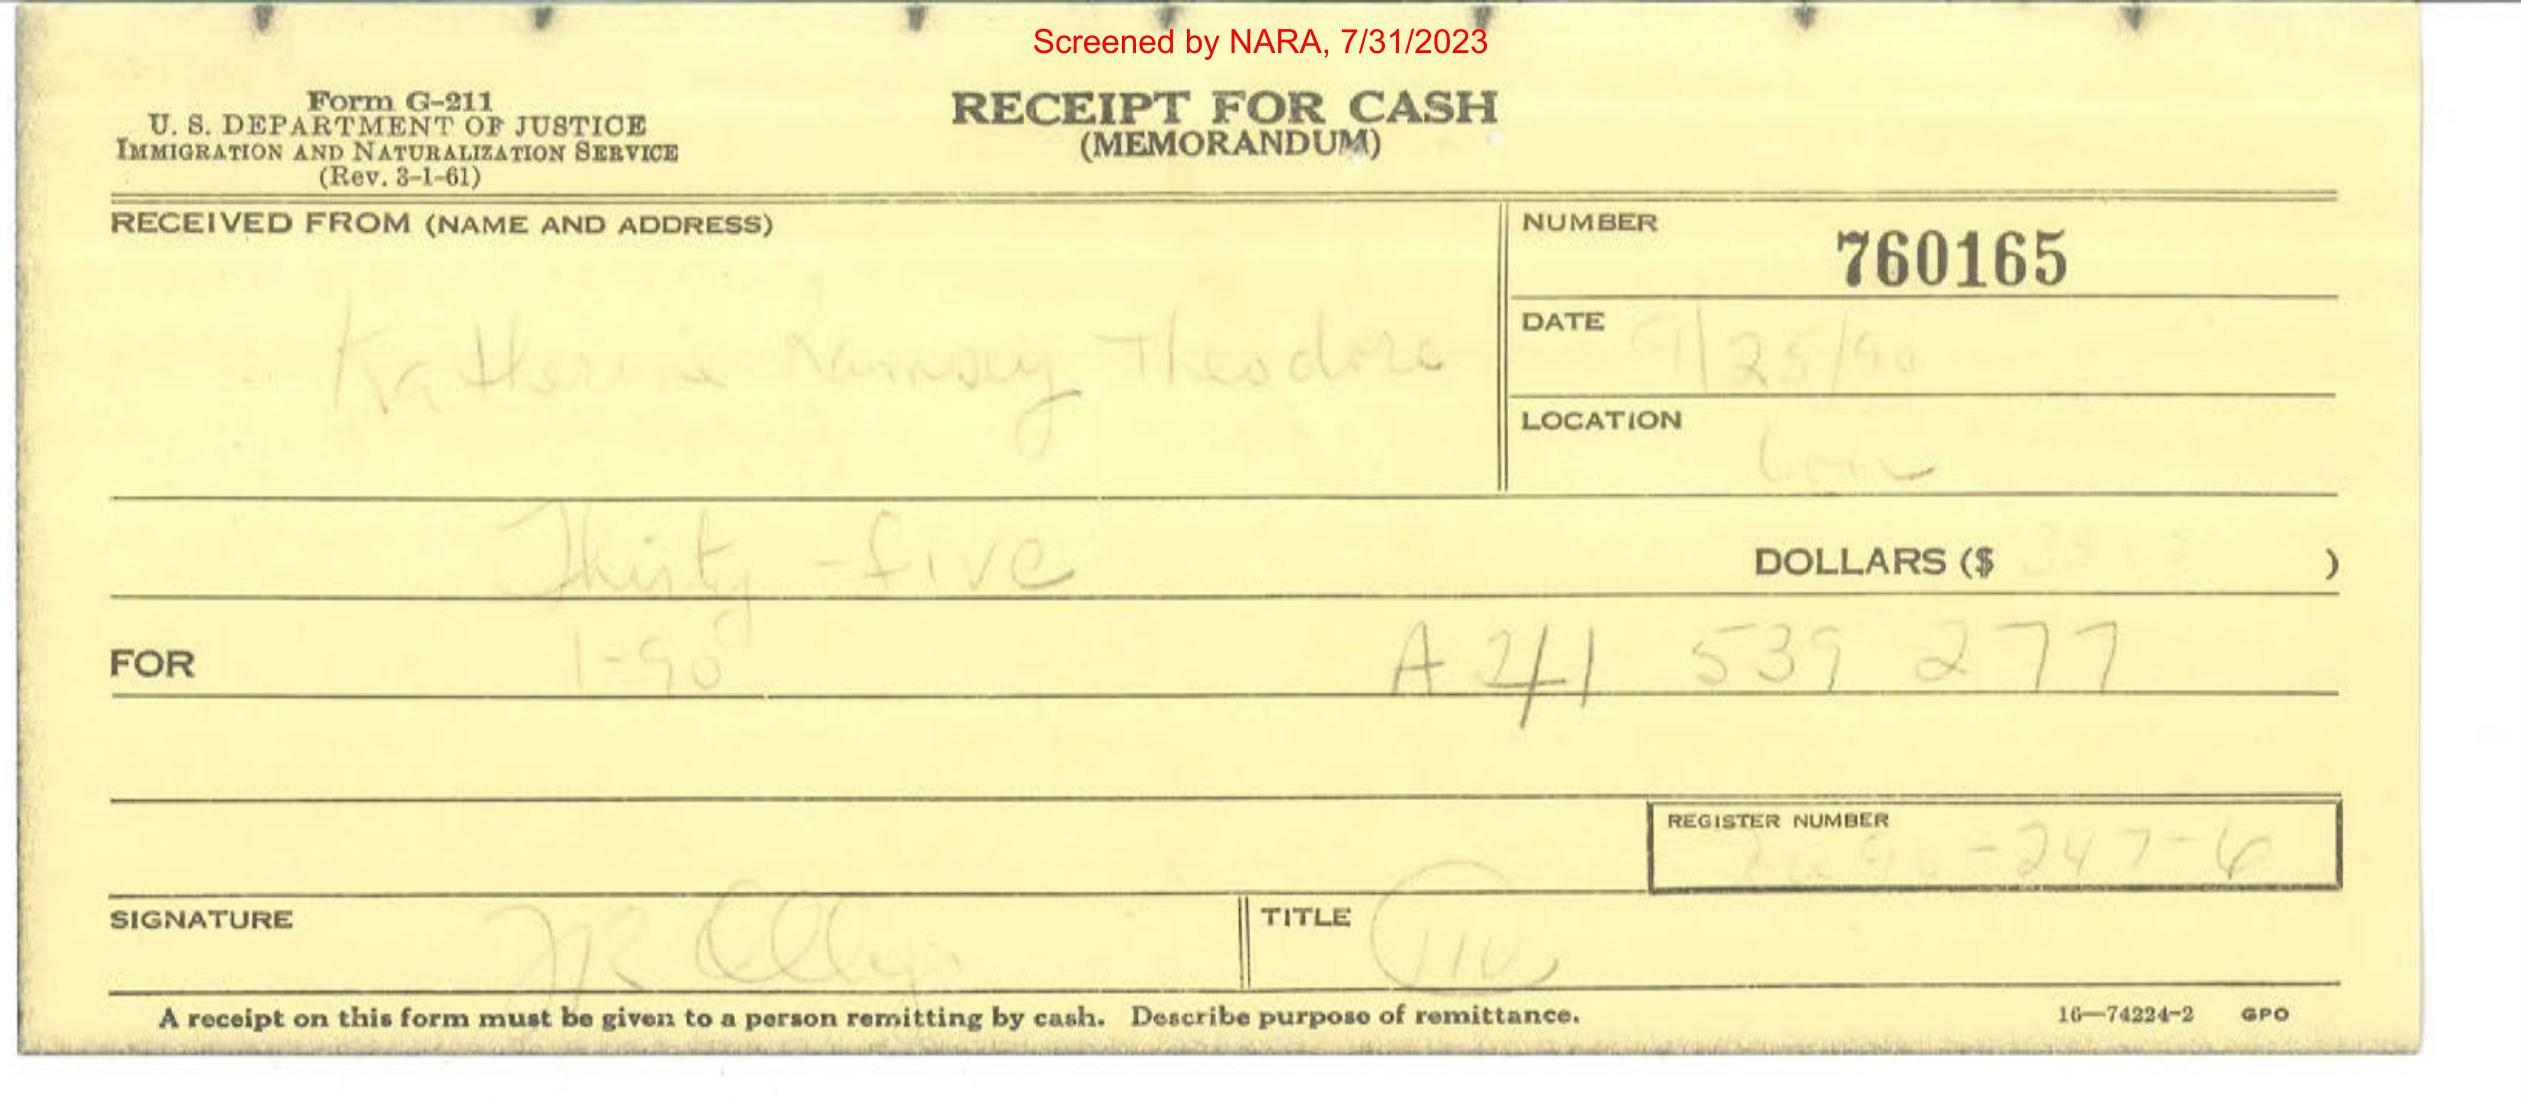 Screened by NARA, 7/31/2023
Form G-211
U. S. DEPARTMENT OF JUSTICE
IMMIGRATION AND NATURALIZATION SERVICE
(Rev. 3-1-61)
RECEIPT FOR CASH
(MEMORANDUM)
RECEIVED FROM (NAME AND ADDRESS)
Katherine Ramsey Theodore
NUMBER
760165
DATE 9/25/90
LOCATION
Thirty-five DOLLARS ($ )
FOR I-90 A 41 539 277
REGISTER NUMBER
-247-6
SIGNATURE
TITLE
A receipt on this form must be given to a person remitting by cash. Describe purpose of remittance.
16—74224-2 GPO